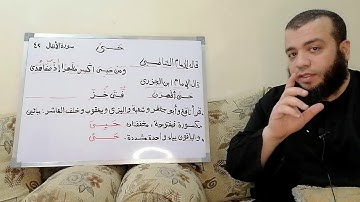 حَيَّ سورة الأنفال ٤٢
قال الإمام الشاطبي
ومن حيي اكسر مظهرا إذ صفا هدى
قال الإمام ابن الجزري
حيي اظهرن
قرأ نافع وأبو جعفر وشعبة والبزي ويعقوب وخلف العاشر بيائين
مكسورة فمفتوحة، مخففتان حَيِيَ
والباقون بياء واحدة مشددة. حَيَّ